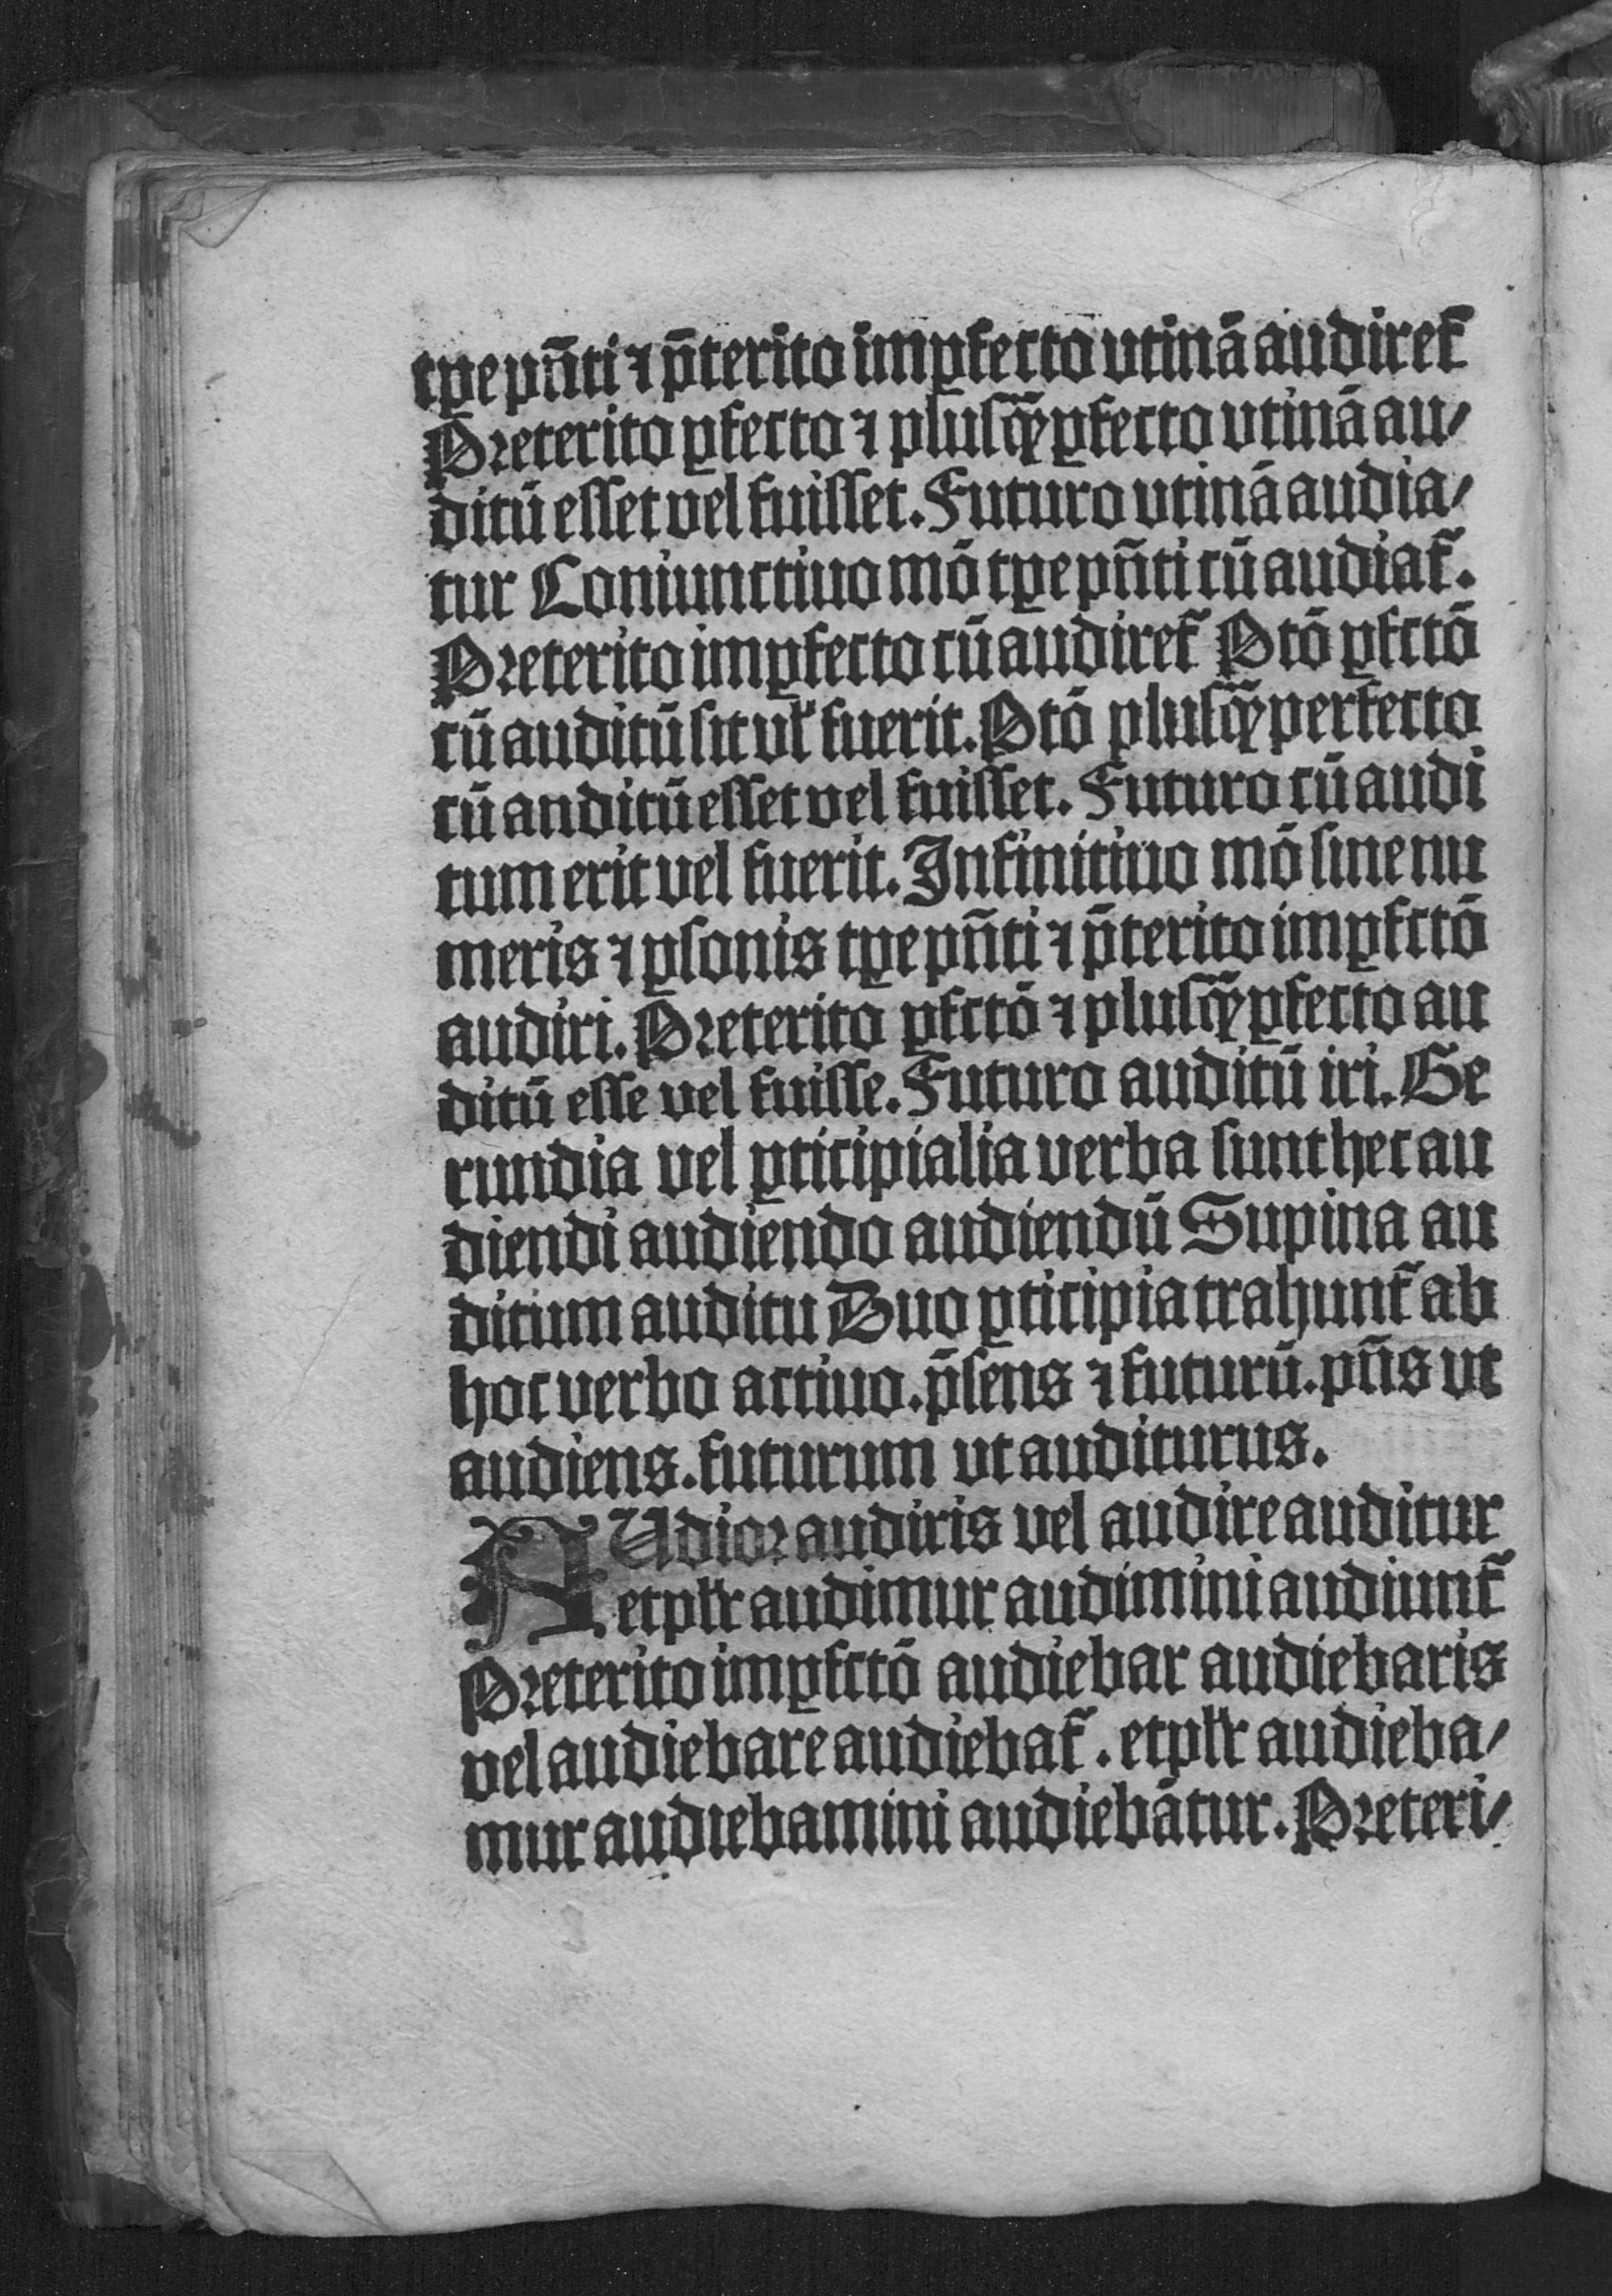 tꝑe pn̄ti ⁊ p̄terito imꝑfecto vtinā audiret᷑
Preterito ꝑfecto ⁊ plusqᷓꝑfecto vtinā au⸗
ditū esset vel fuisset. Futuro vtinā audia⸗
tur Coniunctiuo mō tꝑe pn̄ti cū audiat᷑.
Preterito imꝑfecto cū audiret᷑ Ptō ꝑfctō
cū auditū sit vl̓ fuerit. Ptō plusqᷓperfecto
cū anditū esset vel fuisset. Futuro cū audi
tum erit vel fuerit. Infinitiuo mō sine nu
meris ⁊ ꝑsonis tꝑe pn̄ti ⁊ p̄terito imꝑfctō
audiri. Preterito ꝑfctō ⁊ plusqᷓꝑfecto au
ditū esse vel fuisse. Futuro auditū iri. Ge
rundia vel ꝑticipialia verba sunt hec au
diendi audiendo audiendū Supina au
ditum auditu Duo ꝑticipia trahunt᷑ ab
hoc verbo actiuo. p̄sens ⁊ futurū. pn̄s vt
audiens. futurum vt auditurus.
AUdior audiris vel audire auditur
et pl̓r audimur audimini audiunt᷑
Preterito imꝑfctō audiebar audiebaris
vel audiebare audiebat᷑. et pl̓r audieba⸗
mur audiebamini audiebātur. Preteri⸗